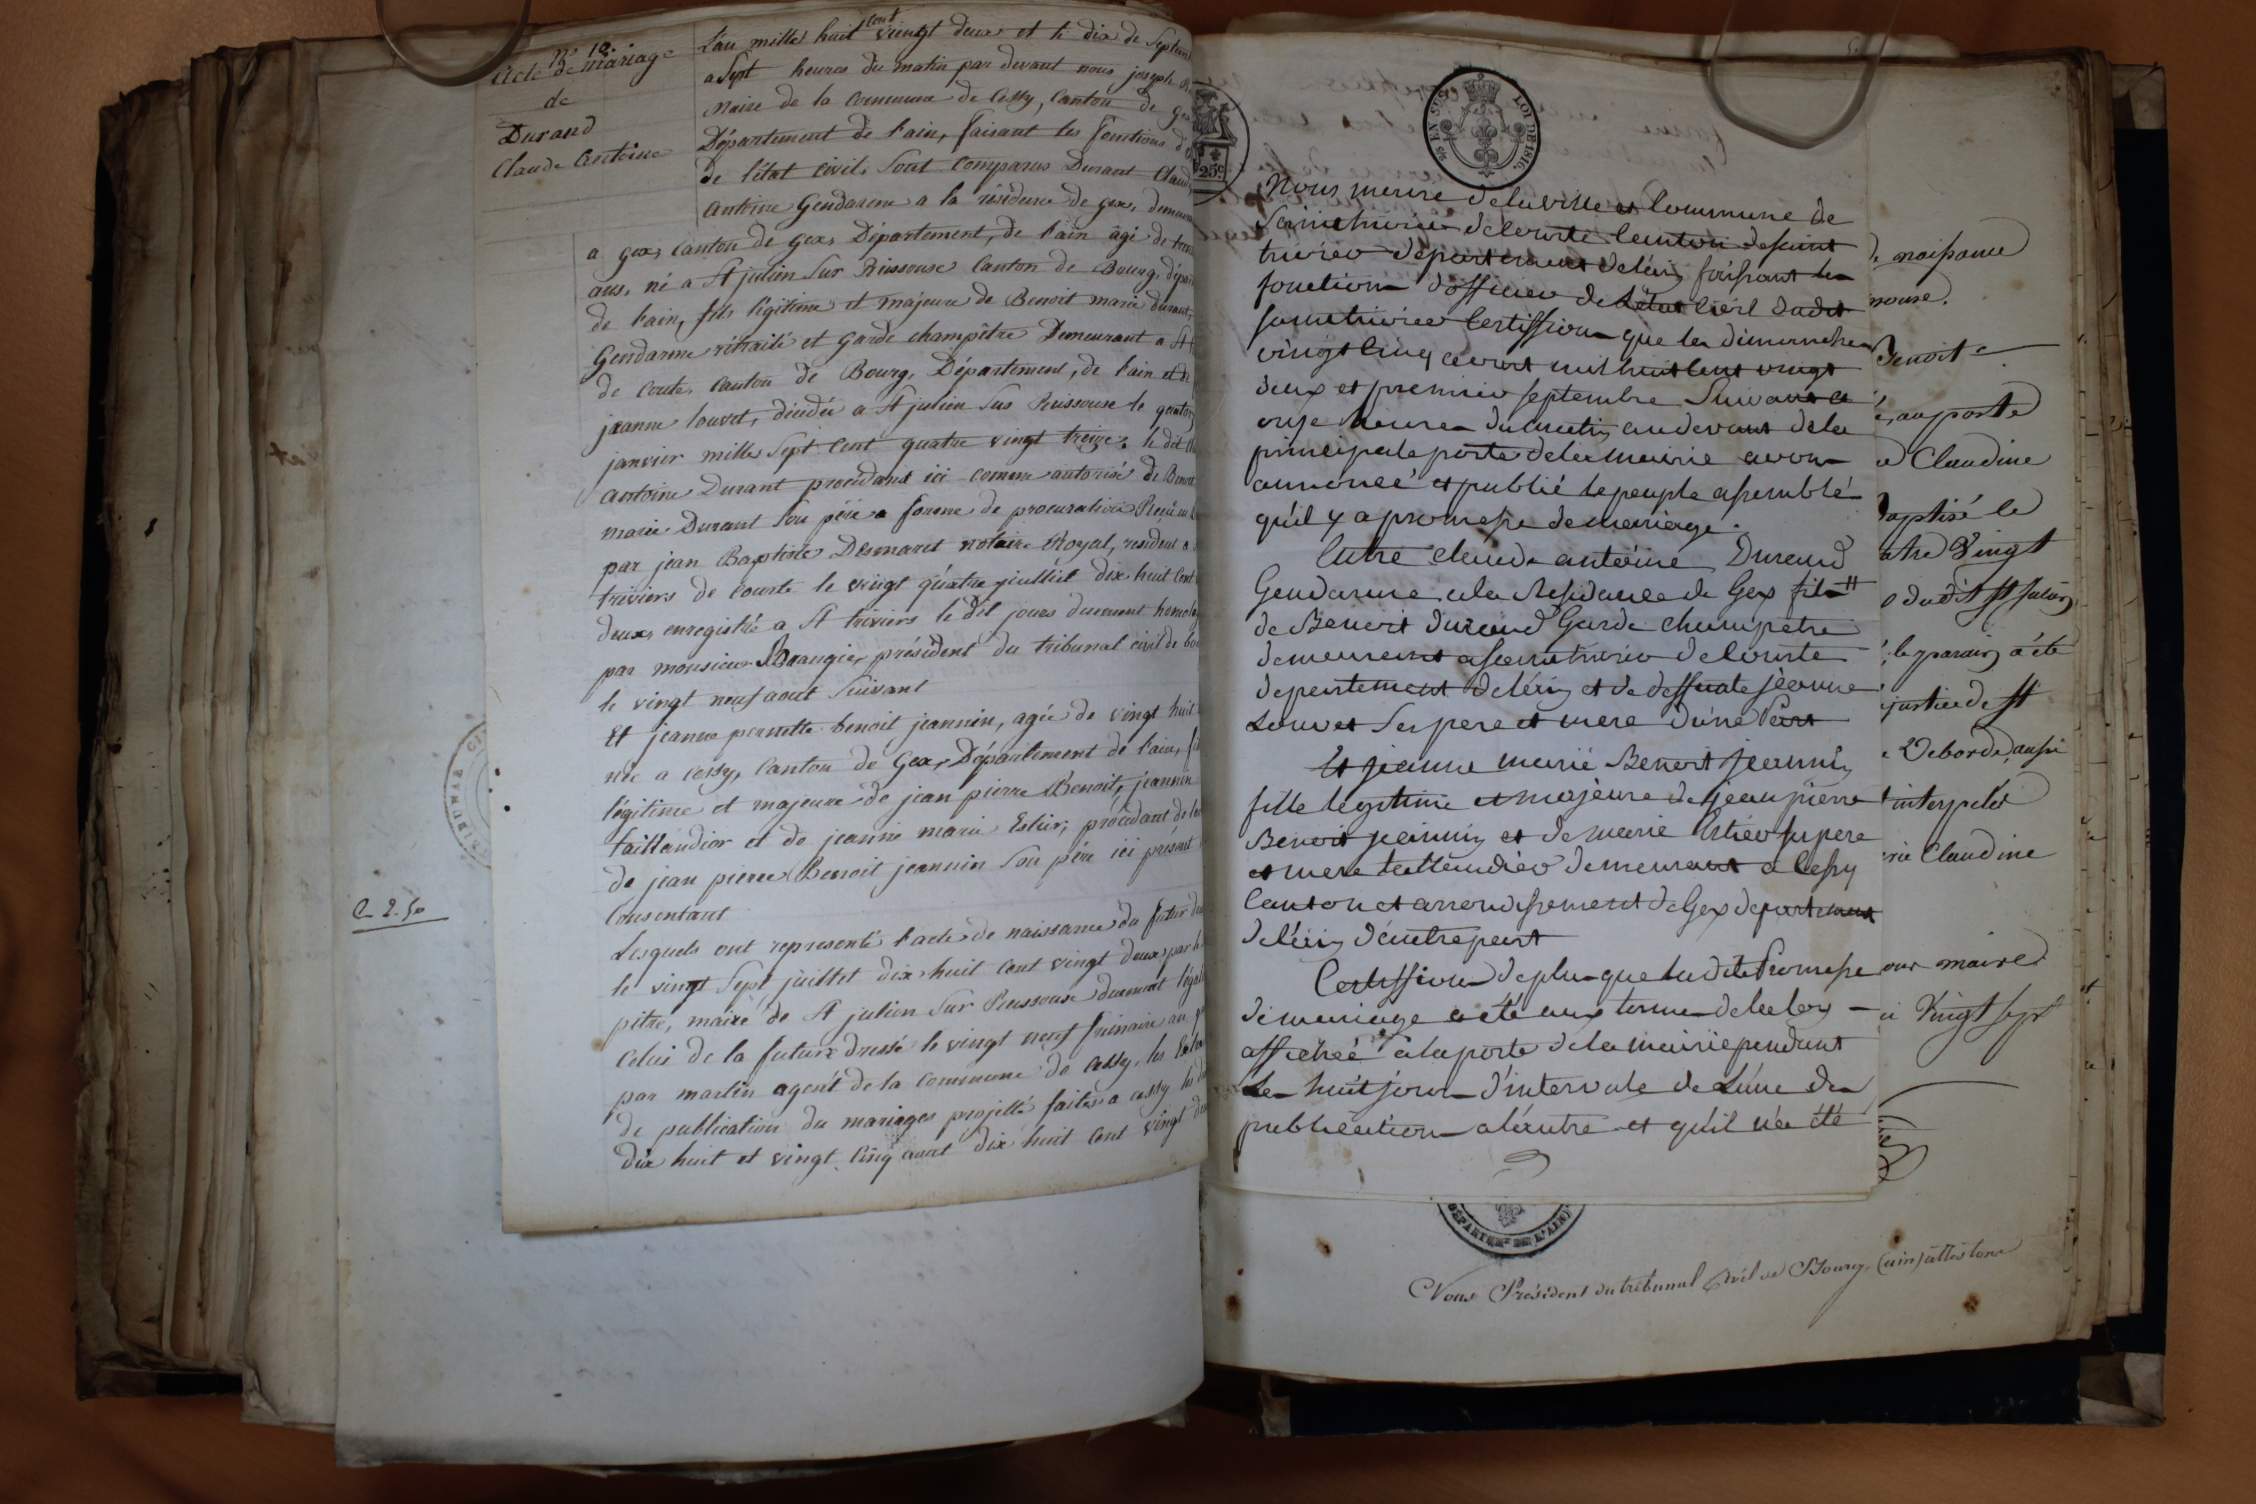 n° 10.
Acte de mariage
de
Durand
Claude Antoine
L'an mille huit cent vingt deux et le dix de Septem
a Sept heures du matin par devant nous joseph
Maire de la Commune de Cessy, Canton de ge
Département de l'ain, faisant les fonctions d'o
de l'état civil, Sont Comparus Durant Claud
Antoine Gendarme a la résidence de gex, demeu
a gex, Canton de Gex, Département, de l'ain âgé de tren
ans, né a St julien Sur Reissouse Canton de Bourg, dépa
de l'ain, fils légitime et majeure de Benoit marie durant,
Gendarme rétraité et Garde champêtre Demeurant a St
de Courte, Canton de Bourg, Département, de l'ain et de
jeanne louvet, décédée a St julien Sus Reissouse le quator
janvier mille Sept Cent quatre vingt treize, le dit Cl
Antoine Durant procédant ici comme autorisé de Benoit
marie Durant Son père a forme de procuration Reçu
par jean Baptiste Desmaret notaire Royal, résident a
triviers de Courte le vingt quatre juilliet dix huit Cent
deux, enregistré a St triviers le dit jours dument homolo
par monsieur Brangier président du tribunal civil de bo
le vingt neuf aout Suivant
Et jeanne pernette benoit jeannin, agée de vingt huit
née a cessy, Canton de Gex, Département de l'ain, fi
légitime et majeure de jean pierre Benoit, jeannin
taillandier et de jeanne marie Estier, procédant de l'au
de jean pierre Benoit jeannin Son père ici présent
Consentant
Lesquels ont representé l'acte de naissance du futur du
le vingt Sept juillet dix huit cent vingt deux, par le
pitre, maire de St julien Sur Reissouse dument légal
Celui de la future dressé le vingt neuf frimaire an
par martin agent de la Commune de Cessy, les Extra
de publication du mariages projetté faites a cessy les
dix huit et vingt Cinq aout dix huit Cent vingt deu
C 2. 50
TRIBUNAL CI
25c
EN SUS
LOI DE 1816.
Nous mere de la ville et Commune de
Sainttrivier de Courte Canton de saint
trivier departement de léin foisant les
fonction d'officier de Létat Civil dudit
sainttrivier Certiffion que les dimanche
vingt Cinq aout mil huit Cent vingt
deux et premier septembre Suivant a
onze heure du matin audevant de la
principale porte de la Mairie avon
annoncé et publié le peuple assemblé
qu'il y a promesse de mariage.
Entre Claude antoine Durand
Gendarme ala Residance de Gex fils
de Benoit durand Garde Champetre
demeurant a sainttrivier de Courte
departement de léin et de deffunte jeanne
Louvet Ses pere et mere d'une Part
Et jeanne marie Benoit jeannin
fille legitime et majeure de jean pierre
Benoit jeannin et de marie Estier su pere
et mere taillandier demeurant a Cessy
Canton et arrondissement de Gex departement
de léin d'autre part
Certiffion de plu que ladite Promesse
de mariage a été aux terme de la loy
affichée a la porte de la mairie pendant
Les huit jour d'intervale de L'une des
publication a l'autre et qu'il n'a été
de naissance
noure.
Benoit
au porte
Claudine
baptisé le
Vingt
du dit St julien
le parain a été
justice de St
Deborde, aussi
interpelé
Claudine
our maire
Vingt sept
DÉPARTEMt DE L'AIN
Nous Président du tribunal Civil de Bourg, (ain) attestons